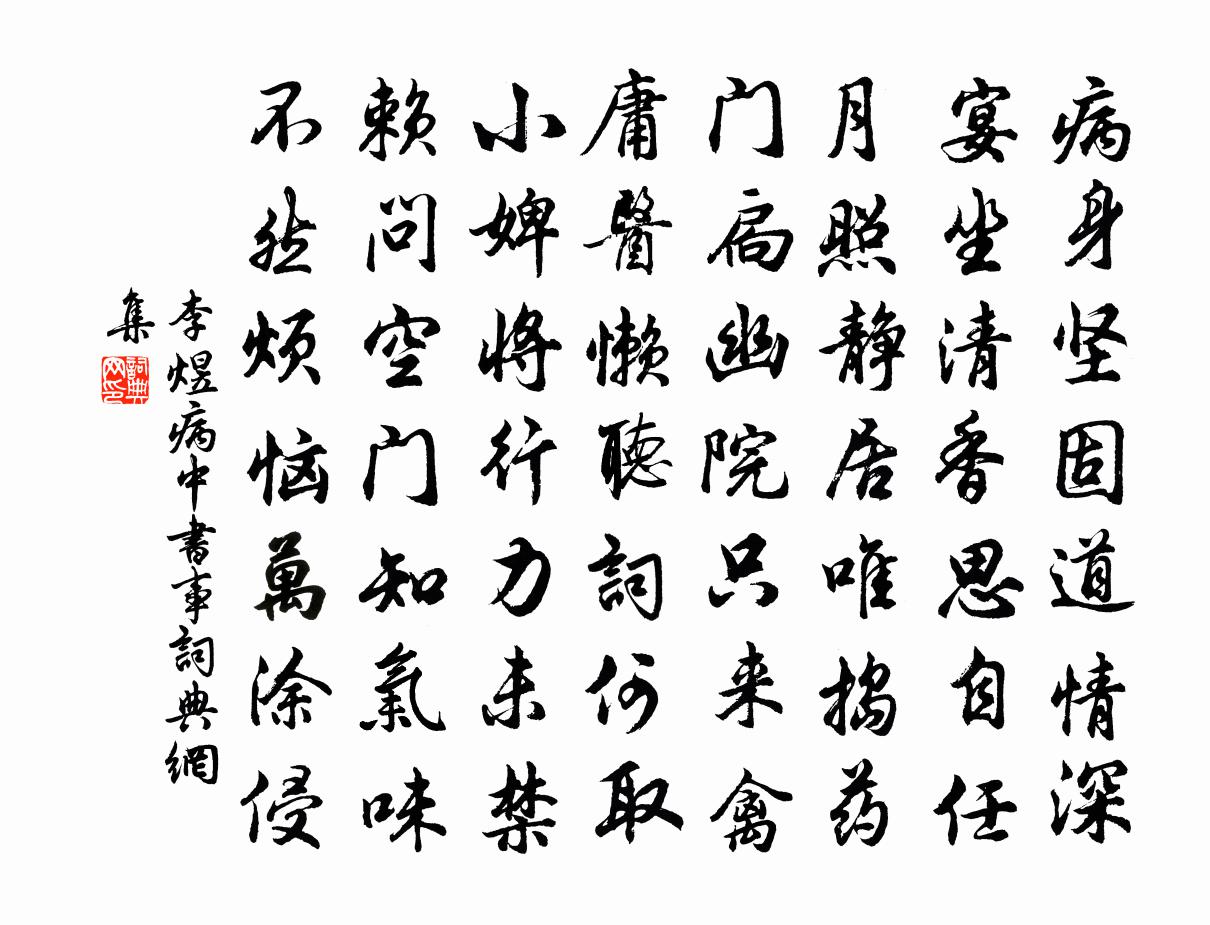 病身坚固道情深
宴坐清香思自任
月照静居唯捣药
门扃幽院只来禽
庸醫懒聽詞何取
小婢将行力未禁
赖问空门知氣味
不然烦恼萬涂侵
李煜病中書事詞典網
集
詞典
网印